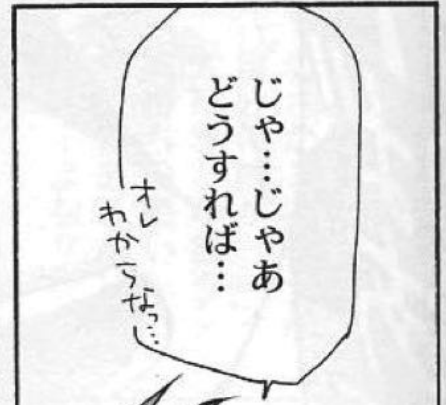 じゃ…じゃあ
どうすれば…
オレ
わからなっ…